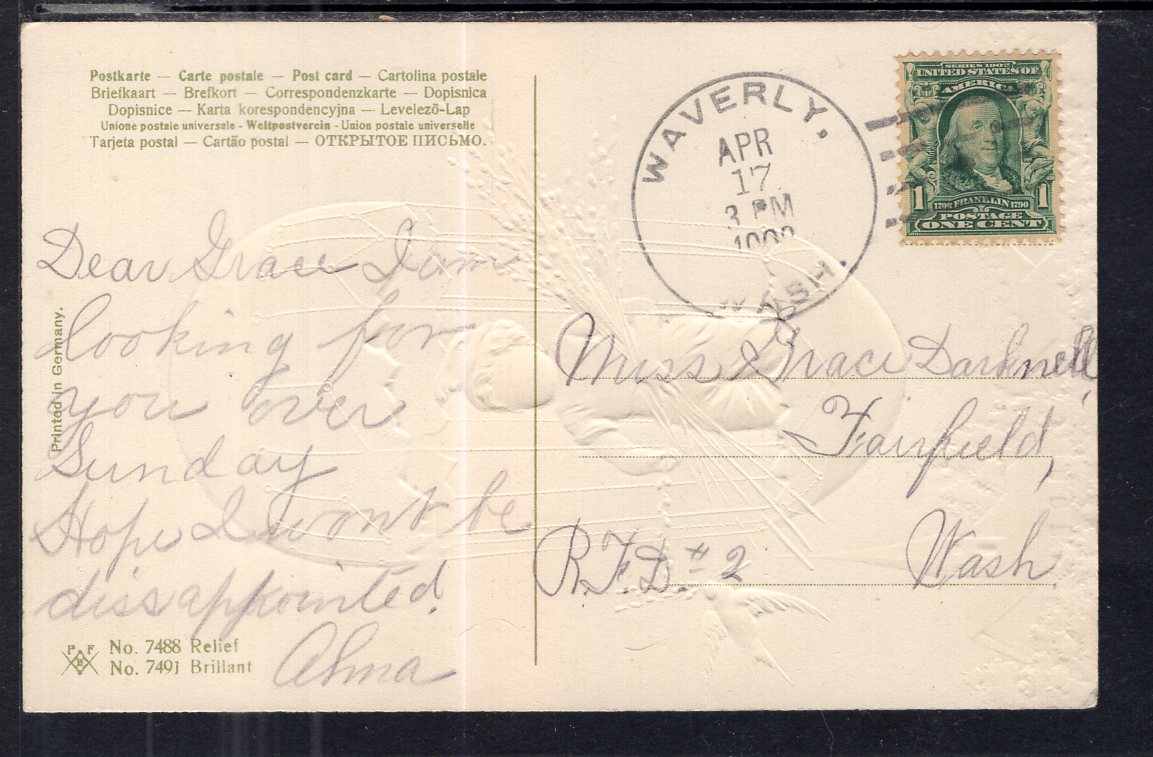 Postkarte — Carte postale — Post card — Cartolina postale
Briefkaart — Brefkort — Correspondenzkarte — Dopisnica
Dopisnice — Karta korespondencyjna — Levelezõ-Lap
Unione postale universale - Weltpostverein - Union postale universelle
Tarjeta postal — Cartão postal — ОТКРЫТОЕ ПИСЬМО.
WAVERLY.
APR
17
3 PM
WASH.
SERIES 1902
UNITED STATES OF
AMERICA
1 1
1706 FRANKLIN 1790
POSTAGE
ONE CENT
Dear Grace I am
looking for
you over
Sunday
Hope I wont be
dissappointed.
Alma
Printed in Germany.
Miss Grace Darknell,
Fairfield,
Wash.
R.F.D. # 2
P F
B
No. 7488 Relief
No. 7491 Brillant